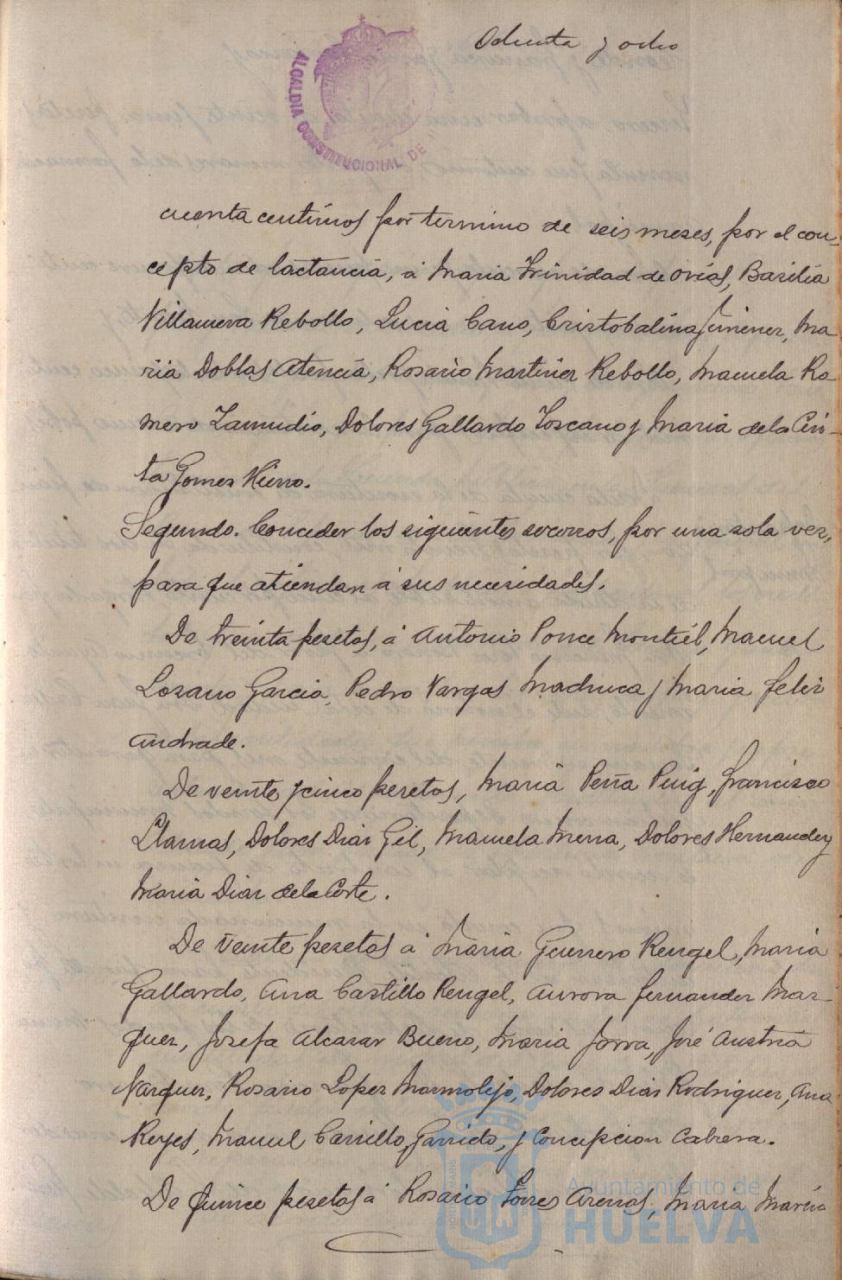 Ochenta y ocho
ALCALDIA CONSTITUCIONAL DE
cuenta centimos por termino de seis meses, por el con-
cepto de lactancia, á Maria Trinidad de Orias, Basilia
Villanueva Rebollo, Lucia Cano, Cristobalina Jimenez, Ma
ria Doblas Atencia, Rosario Martinez Rebollo, Manuela Ro
mero Zamudio, Dolores Gallardo Toscano y Maria de la Cin-
ta Gomez Hierro.
Segundo. Conceder los siguientes socorros, por una sola vez,
para que atiendan á sus necesidades.
De treinta pesetas, á Antonio Ponce Montiel, Manuel
Lozano Garcia, Pedro Vargas y Maria Felix
Andrade.
De veinte y cinco pesetas, Maria Peña Puig, Francisco
Llamas, Dolores Diaz Gil, Manuela Mena, Dolores Hernandez y
Maria Diaz de la Corte.
De veinte pesetas á Maria Guerrero Rengel, Maria
Gallardo, Ana Castillo Rengel, Aurora Fernandez Mar-
quez, Josefa Alcazar Bueno, Maria Jarra, José Austria
Vazquez, Rosario Lopez Marmolejo, Dolores Diaz Rodriguez, Ana
Reyes, Manuel Carrillo Garrido, y Concepcion Cabrera.
De quince pesetas á Rosario Torres Arenas, Maria Martin
Ayuntamiento de
HUELVA